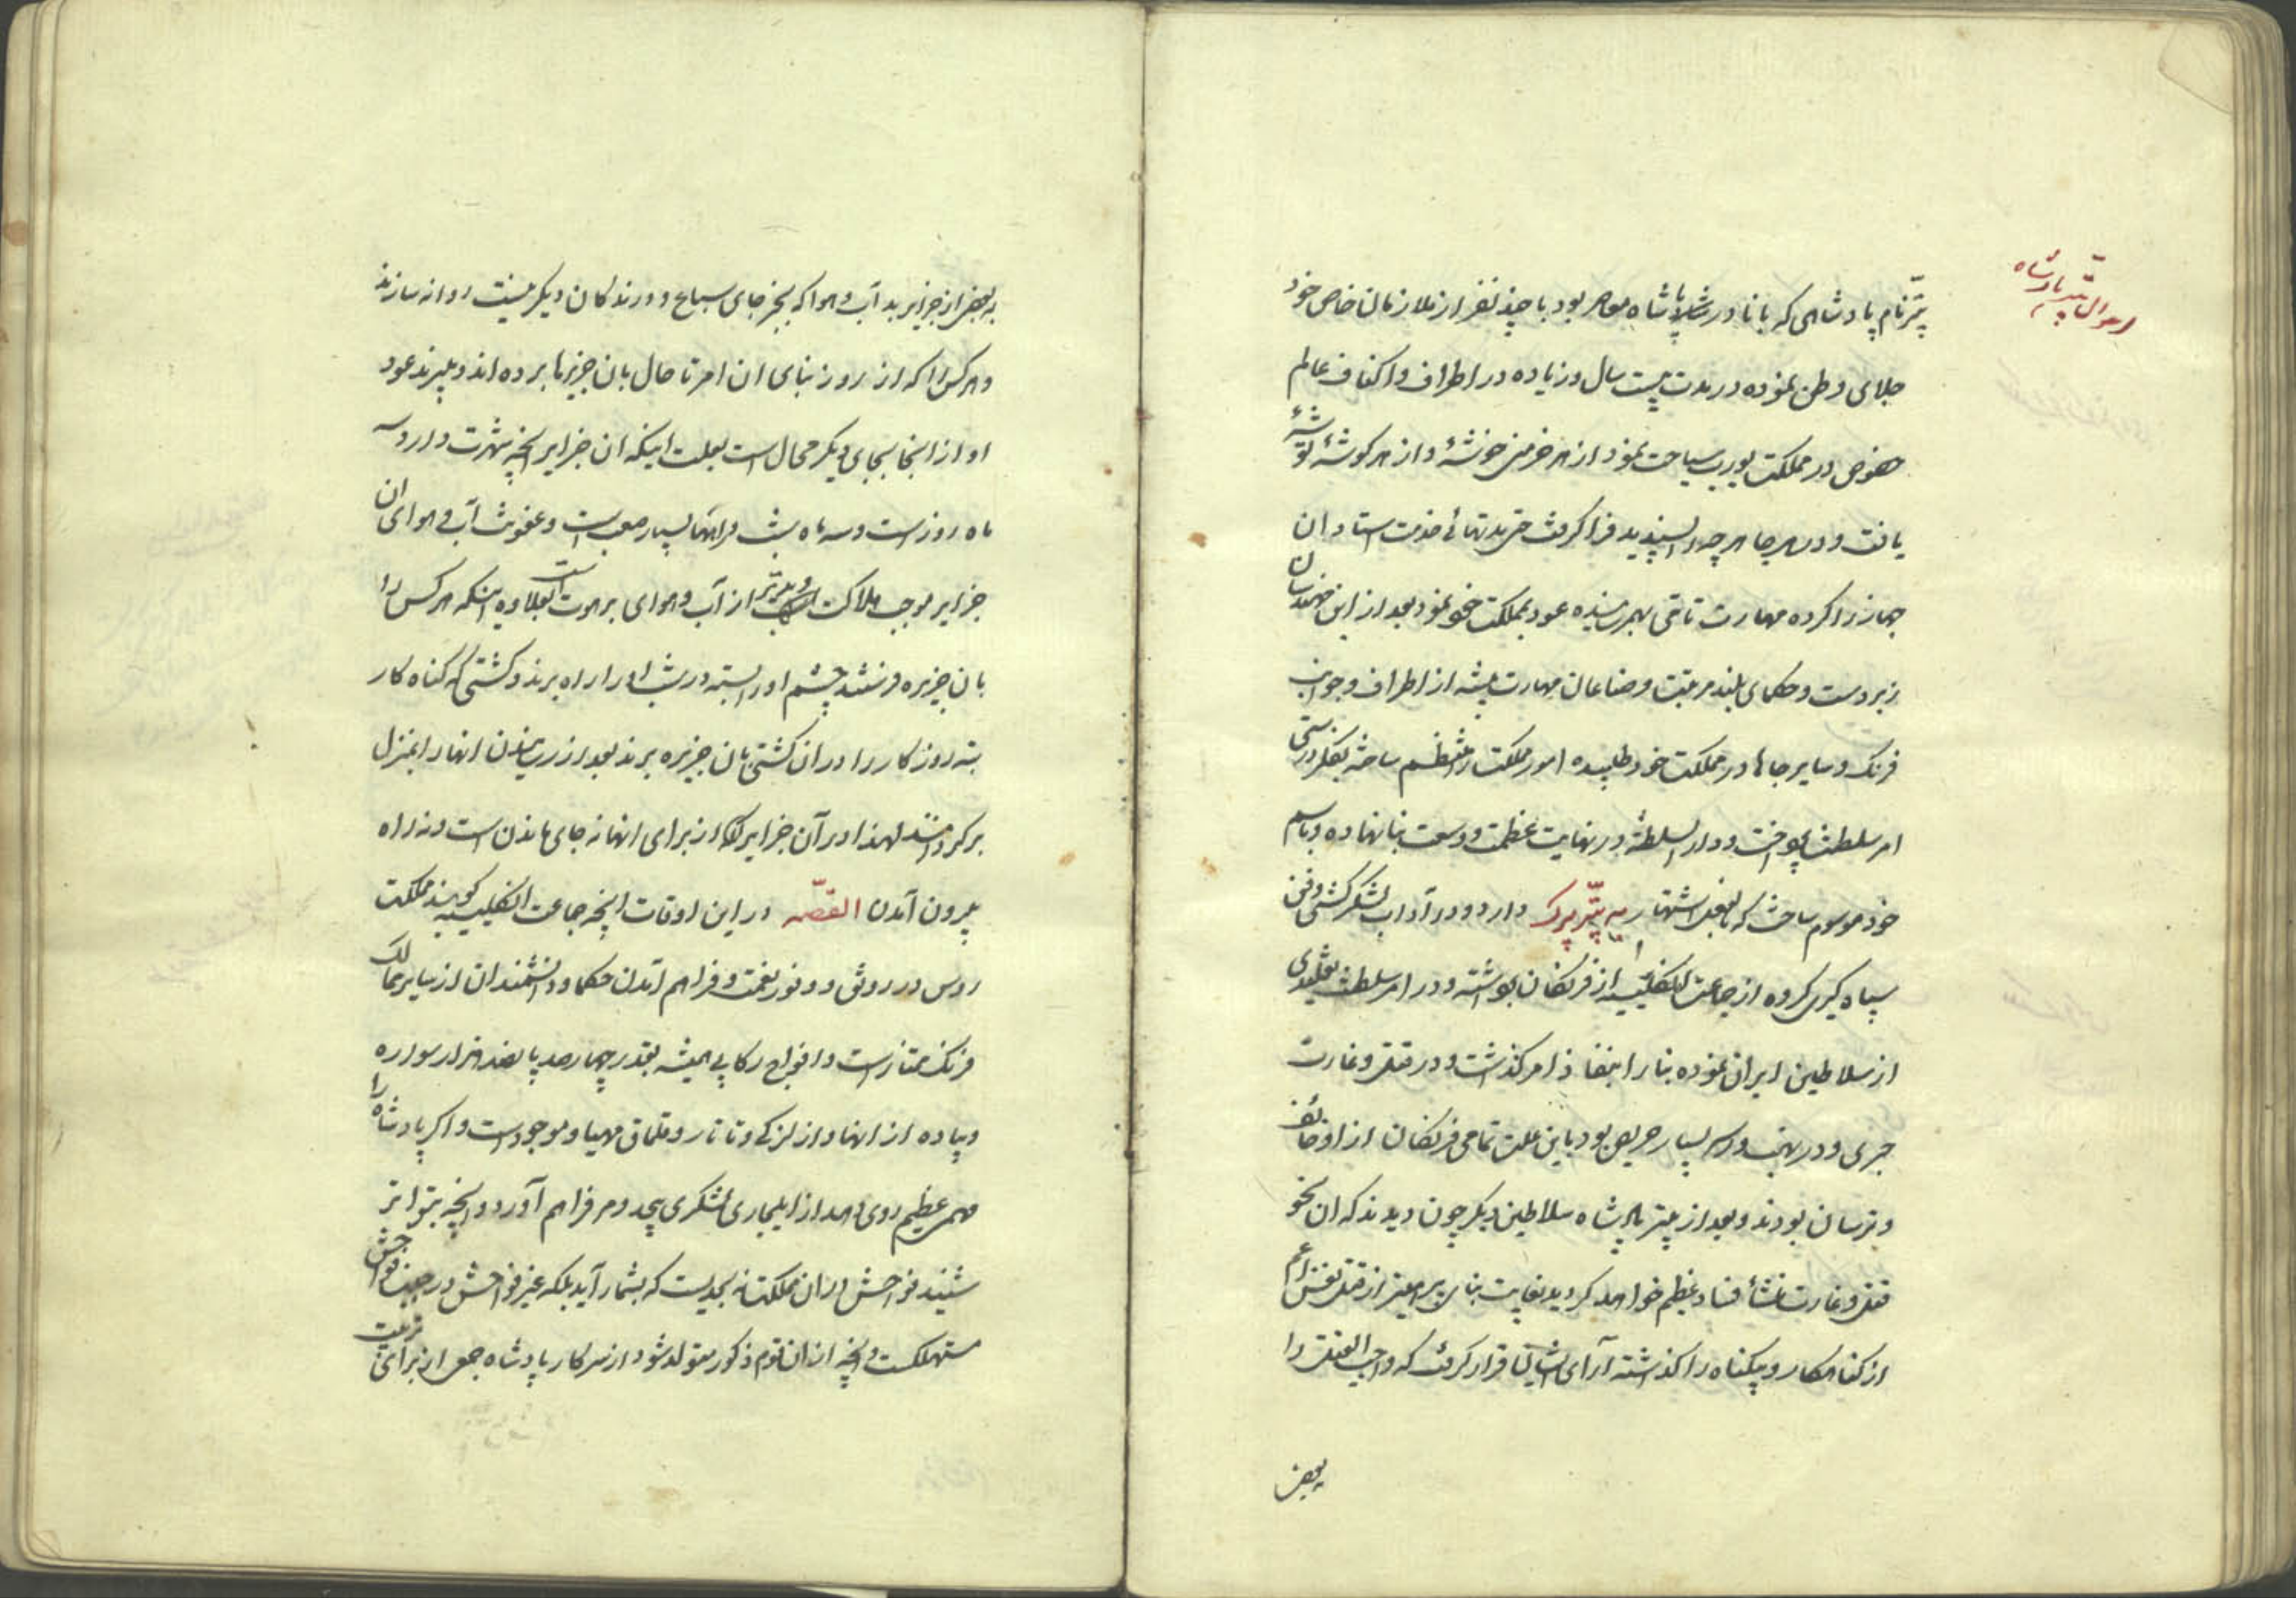 احوال پتر پادشاه
پتر نام پادشاهی که با نادر شاه معاصر بود با چند نفر از ملازمان خاص خود
جلای وطن نموده در مدت بیست سال و زیاده در اطراف و اکناف عالم
خصوص در مملکت یورپ سیاحت نمود از هر خرمنی خوشهٔ و از هر کوشهٔ توشهٔ
یافت و در هر جا هر چه را پسندید فرا کرفت حتی مدتها خدمت استادان
جهاز را کرده مهارت تامی بهم رسانیده عود بمملکت خود نمود بعد از این
زبردست و حکمای بلند مرتبت و صناعان مهارت پیشه از اطراف و جوانب
فرنک و سایر جاها در مملکت خود طلبیده امور مملکت را منتظم ساخته بفکر درستی
امر سلطنت پرداخت و دار السلطنهٔ در نهایت عظمت و وسعت بنا نهاده و باسم
خود موسوم ساخت که بالفعل اشتهار به پتر برک دارد و در آداب لشکر کشی و فن
سپاه کیری کروه از جماعت انکلیسیه از فرنکان بوده و در امر سلطنت تقلیدی
از سلاطین ایران نموده بنا را بنفاذ امر کذاشت و در قتل و غارت
جری و در نهب و اسر بسیار حریص بود باین علت تمامی فرنکان از او خائف
و ترسان بودند و بعد از پتر پادشاه سلاطین دیکر چون دیدند که ان نحو
قتل و غارت منشأ فساد عظیم خواهد کردید از قتل نفس اعم
از کناهکار و بیکناه را کذاشته آرای ایشان قرار کرفت که واجب القتل را
ببعض
به بعضی از جزایر بد آب و هوا که بجز جای سباع و درندکان دیکر نیست روانه سازند
و هر کس را که از روز بنای ان امر تا حال بان جزیرها برده اند و میبرند عود
او از انجا بجای دیکر محال است بعلت اینکه ان جزایر انچه شهرت دارد سه
ماه روز است و سه ماه شب و راهها بسیار صعب است و عفونت آب و هوای ان
جزایر موجب هلاکت و بدتر از آب و هوای برهوت است بعلاوه اینکه هر کس را
بان جزیره فرستند چشم او را بسته در شب او را راه برند و کشتی که کناه کار
تبه روزکار را در ان کشتی بان جزیره برند بعد از رسیدن انها را بمنزل
برکردانند لهذا در آن جزایر از برای انها نه جای ماندن است و نه راه
بیرون آمدن القصه در این اوقات انچه جماعت انکلیسیه کویند مملکت
روس در رونق و وفور نعمت و فراهم آمدن حکما و دانشمندان از سایر ممالک
فرنک ممتاز است و افواج رکابی همیشه بقدر چهار صد پانصد هزار سواره
و پیاده از انها و از لزکی و تاتار و قلماق مهیا و موجود است و اکر پادشاه را
مهمی عظیم روی دهد از ایلجاری لشکری بیحد و مر فراهم آورد و انچه بتواتر
شنیده فواحش در ان مملکت نه بحدیست که بشمار آید بلکه غیر فواحش در جنب فواحش
مستهلکست و انچه از ان قوم مذکور متولد شود از سرکار پادشاه جمعی از برای تربیت